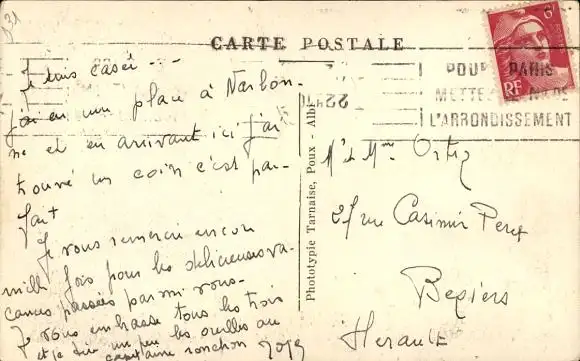 831
CARTE POSTALE
6F
RF
POUR PARIS
METTEZ LE No DE
L'ARRONDISSEMENT
Je suis casée - -
j'ai eu une place à Narbon-
ne et en arrivant ici j'ai
trouvé un coin c'est par-
fait
Je vous remercie encore
mille fois pour les délicieuses va-
cances passées parmi vous -
Je vous embrasse tous les trois
et je tire un peu les oreilles au
capitaine ronchon
Phototypie Tarnaise, Poux - Albi
Mr et Mme Ortiz
27 rue Casimir Peret
Beziers
Herault